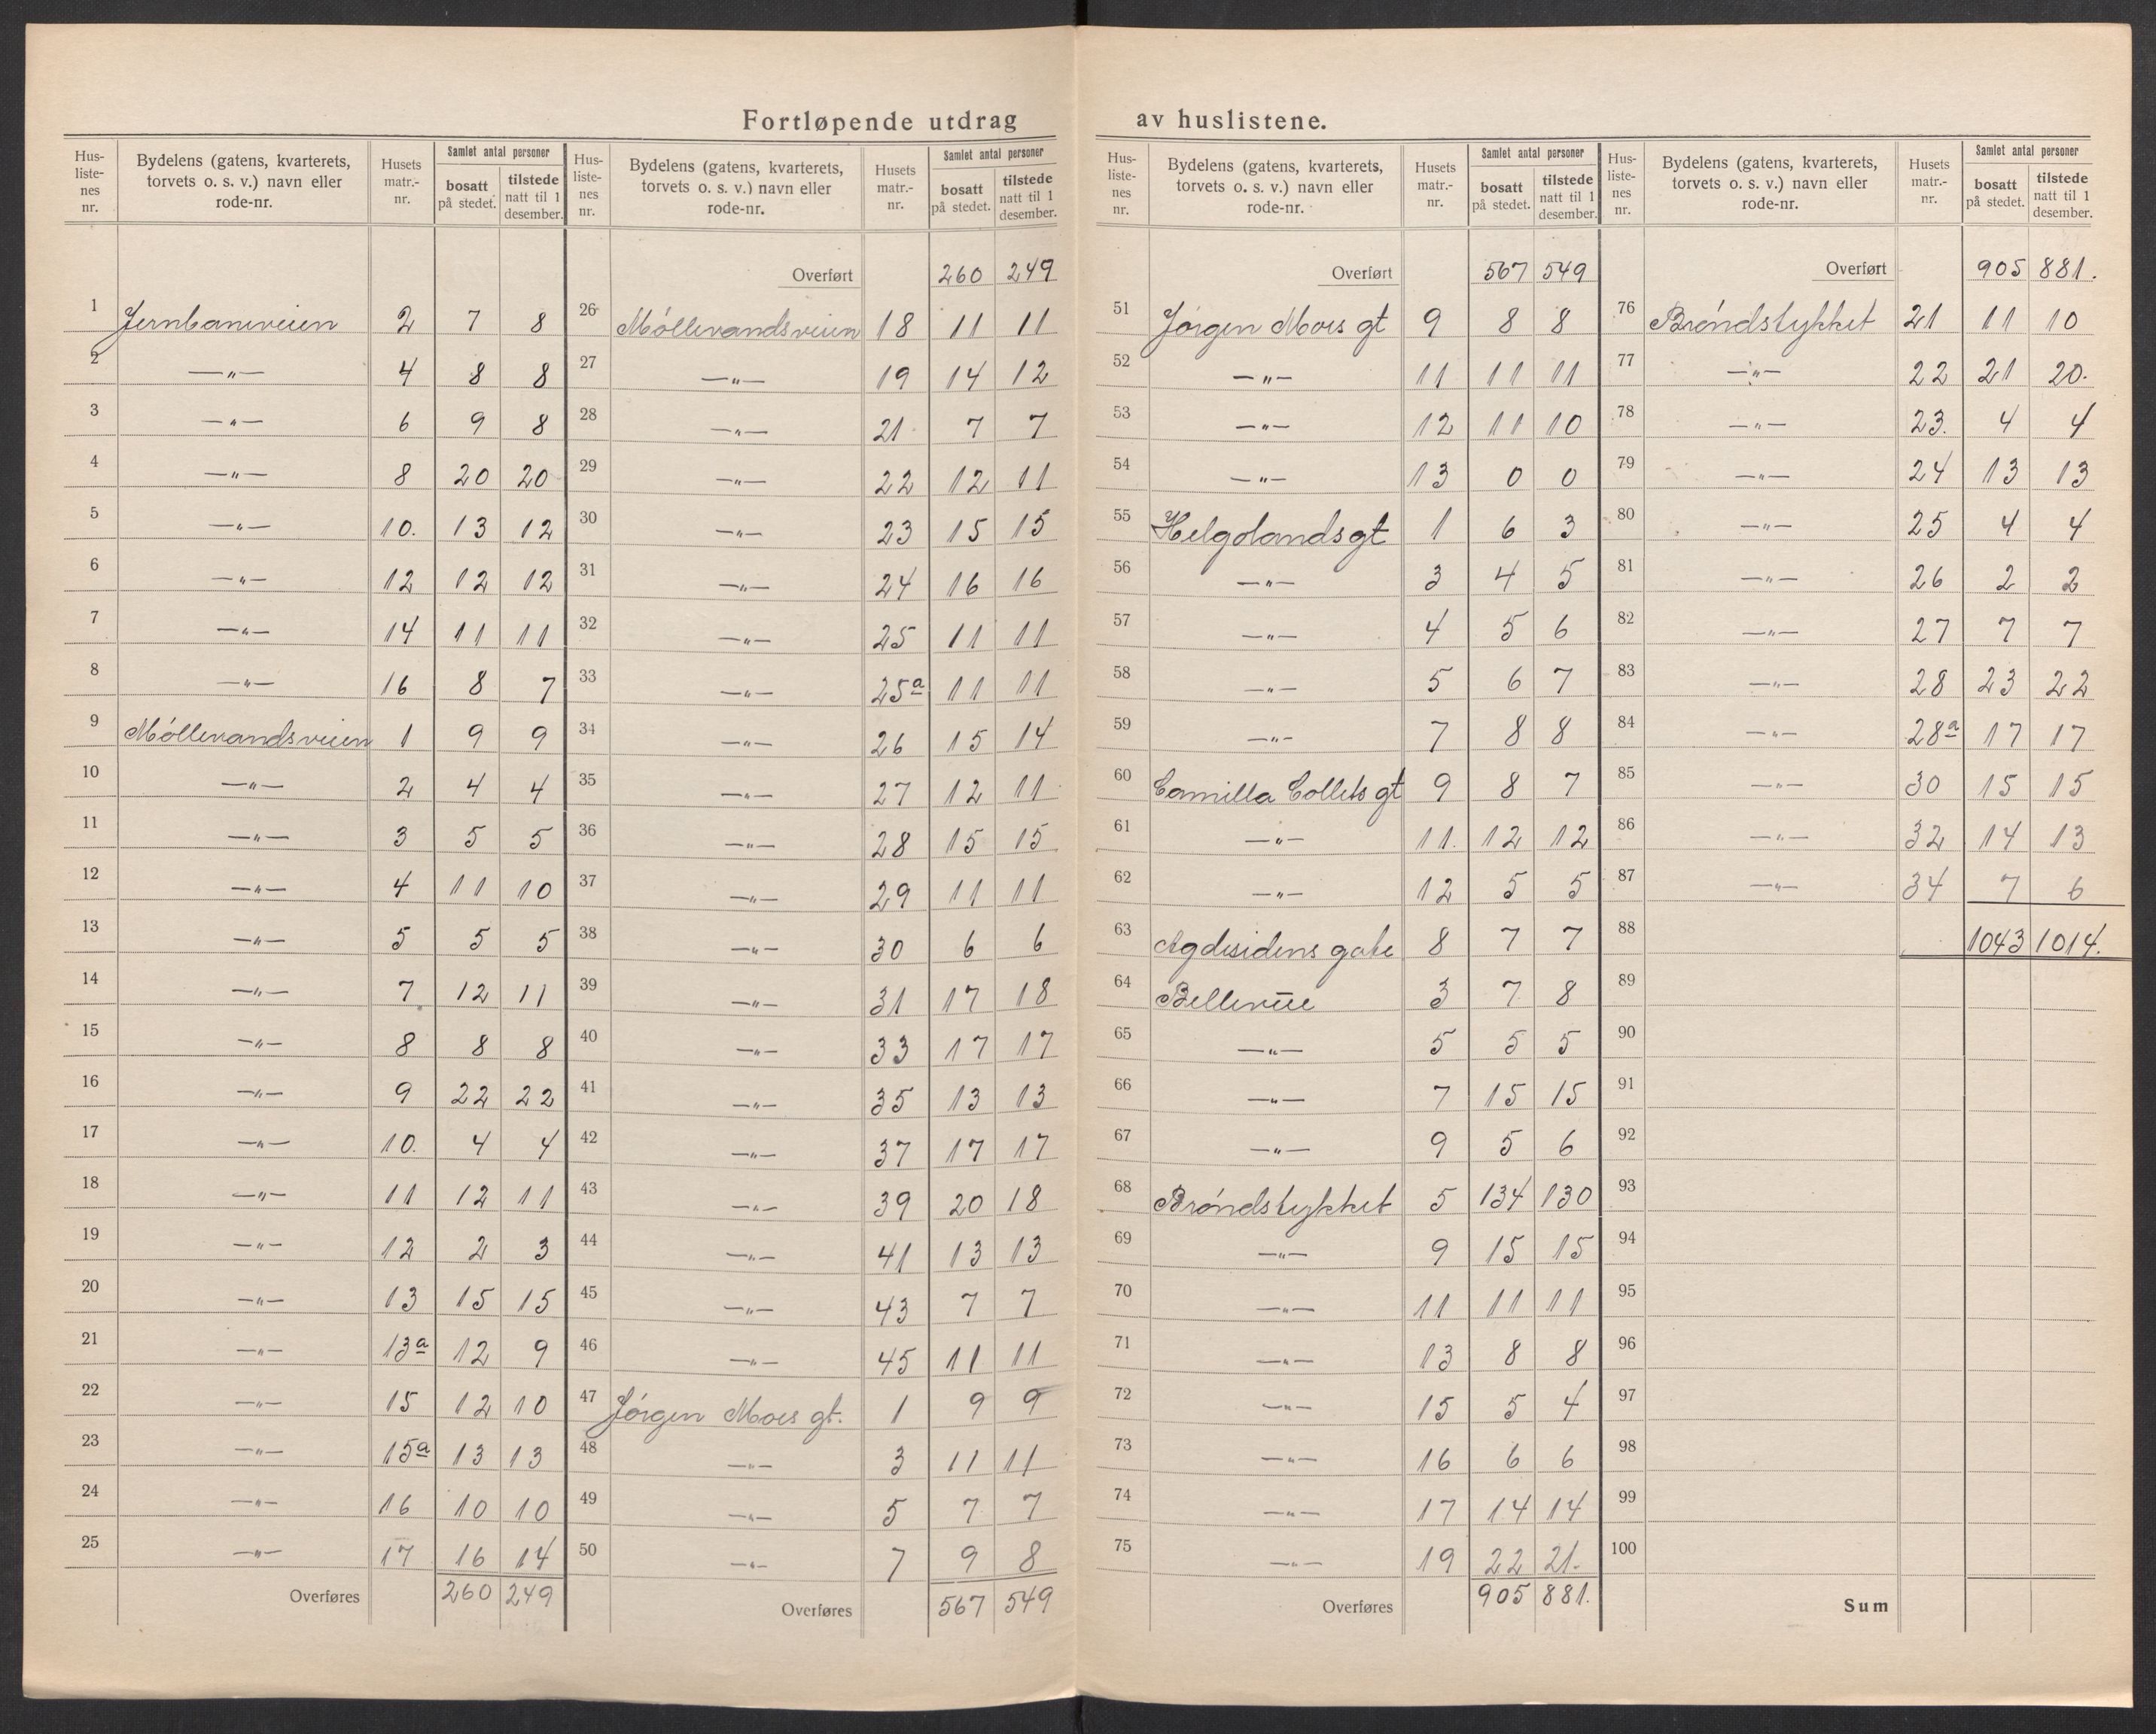 Fortløpende utdrag av huslistene.
Hus-listenes nr. | Bydelens (gatens, kvarterets, torvets o. s. v.) navn eller rode-nr. | Husets matr.-nr. | Samlet antal personer bosatt på stedet. | tilstede natt til 1 desember.
1 Jernbaneveien 2 7 8
2 —„— 4 8 8
3 —„— 6 9 8
4 —„— 8 20 20
5 —„— 10. 13 12
6 —„— 12 12 12
7 —„— 14 11 11
8 —„— 16 8 7
9 Møllevandsveien 1 9 9
10 —„— 2 4 4
11 —„— 3 5 5
12 —„— 4 11 10
13 —„— 5 5 5
14 —„— 7 12 11
15 —„— 8 8 8
16 —„— 9 22 22
17 —„— 10. 4 4
18 —„— 11 12 11
19 —„— 12 2 3
20 —„— 13 15 15
21 —„— 13a 12 9
22 —„— 15 12 10
23 —„— 15a 13 13
24 —„— 16 10 10
25 —„— 17 16 14
Overføres 260 249
Hus-listenes nr. | Bydelens (gatens, kvarterets, torvets o. s. v.) navn eller rode-nr. | Husets matr.-nr. | Samlet antal personer bosatt på stedet. | tilstede natt til 1 desember.
Overført 260 249
26 Møllevandsveien 18 11 11
27 —„— 19 14 12
28 —„— 21 7 7
29 —„— 22 12 11
30 —„— 23 15 15
31 —„— 24 16 16
32 —„— 25 11 11
33 —„— 25a 11 11
34 —„— 26 15 14
35 —„— 27 12 11
36 —„— 28 15 15
37 —„— 29 11 11
38 —„— 30 6 6
39 —„— 31 17 18
40 —„— 33 17 17
41 —„— 35 13 13
42 —„— 37 17 17
43 —„— 39 20 18
44 —„— 41 13 13
45 —„— 43 7 7
46 —„— 45 11 11
47 Jørgen Moes gt. 1 9 9
48 —„— 3 11 11
49 —„— 5 7 7
50 —„— 7 9 8
Overføres 567 549
Hus-listenes nr. | Bydelens (gatens, kvarterets, torvets o. s. v.) navn eller rode-nr. | Husets matr.-nr. | Samlet antal personer bosatt på stedet. | tilstede natt til 1 desember.
Overført 567 549
51 Jørgen Moes gt 9 8 8
52 —„— 11 11 11
53 —„— 12 11 10
54 —„— 13 0 0
55 Helgolandsgt 1 6 3
56 —„— 3 4 5
57 —„— 4 5 6
58 —„— 5 6 7
59 —„— 7 8 8
60 Camilla Collets gt 9 8 7
61 —„— 11. 12 12
62 —„— 12 5 5
63 Agdesidens gate 8 7 7
64 Bellevue 3 7 8
65 —„— 5 5 5
66 —„— 7 15 15
67 —„— 9 5 6
68 Brøndstykket 5 134 130
69 —„— 9 15 15
70 —„— 11 11 11
71 —„— 13 8 8
72 —„— 15 5 4
73 —„— 16 6 6
74 —„— 17 14 14
75 —„— 19 22 21.
Overføres 905 881.
Hus-listenes nr. | Bydelens (gatens, kvarterets, torvets o. s. v.) navn eller rode-nr. | Husets matr.-nr. | Samlet antal personer bosatt på stedet. | tilstede natt til 1 desember.
Overført 905 881.
76 Brøndstykket 21 11 10
77 —„— 22 21 20.
78 —„— 23. 4 4
79 —„— 24 13 13
80 —„— 25 4 4
81 —„— 26 2 2
82 —„— 27 7 7
83 —„— 28 23 22
84 —„— 28a 17 17
85 —„— 30 15 15
86 —„— 32 14 13
87 —„— 34 7 6
88 1043 1014.
89
90
91
92
93
94
95
96
97
98
99
100
Sum